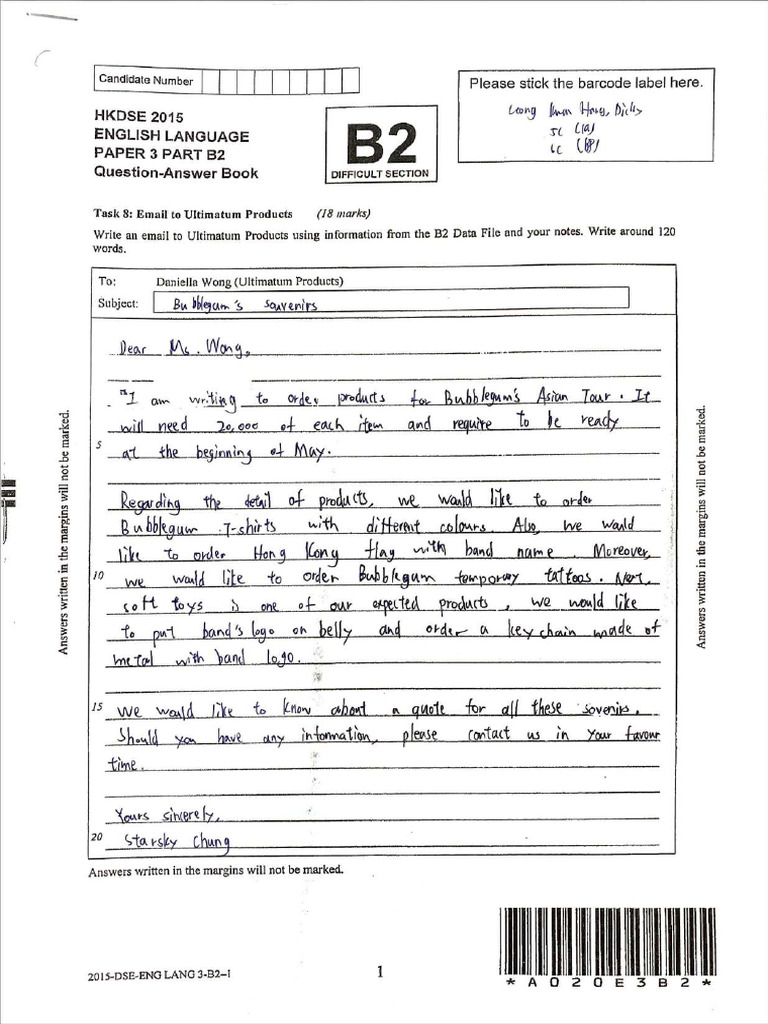 Candidate Number
Please stick the barcode label here.
HKDSE 2015
ENGLISH LANGUAGE
PAPER 3 PART B2
Question-Answer Book
B2
DIFFICULT SECTION
5C (19)
6C (18)
Task 8: Email to Ultimatum Products (18 marks)
Write an email to Ultimatum Products using information from the B2 Data File and your notes. Write around 120
words.
To: Daniella Wong (Ultimatum Products)
Subject: Bubblegum's souvenirs
Dear Ms. Wong,
I am writing to order products for Bubblegum's Asian Tour. It
will need 20,000 of each item and require to be ready
5 at the beginning of May.
Regarding the detail of products, we would like to order
Bubblegum T-shirts with different colours. Also, we would
like to order Hong Kong flag with band name. Moreover,
10 we would like to order Bubblegum temporary tattoos. Next,
soft toys is one of our expected products, we would like
to put band's logo on belly and order a key chain made of
metal with band logo.
15 we would like to know about a quote for all these sovenirs.
Should you have any information, please contact us in your favour
time.
Yours sincerely,
20 Starsky Chung
Answers written in the margins will not be marked.
Answers written in the margins will not be marked.
Answers written in the margins will not be marked.
2015-DSE-ENG LANG 3-B2-1
1
*A020E3B2*